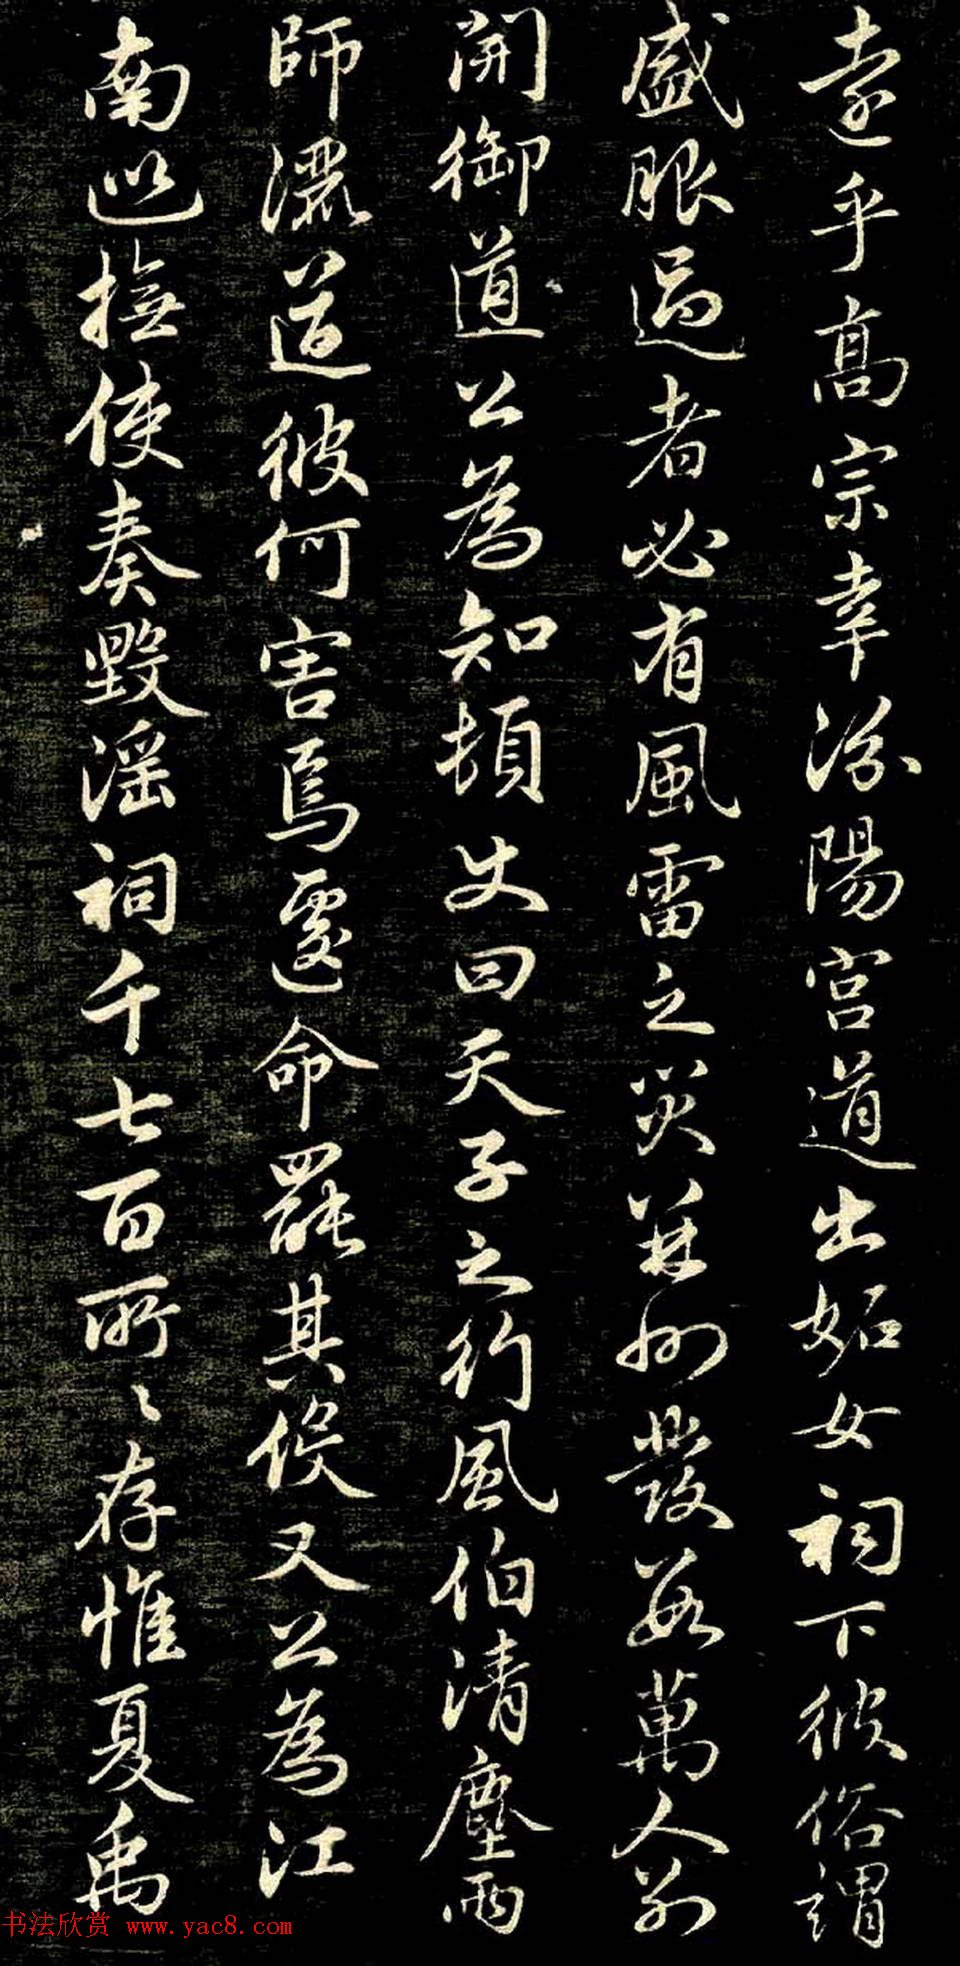 遠乎高宗幸汾陽宮道出妬女祠下彼俗謂
盛服過者必有風雷之災并州發數萬人別
開御道公為知頓史曰天子之行風伯清塵雨
師灑道彼何害焉遽命罷其役又公為江
南巡撫使奏毀淫祠千七百所〻存惟夏禹
书法欣赏 www.yac8.com